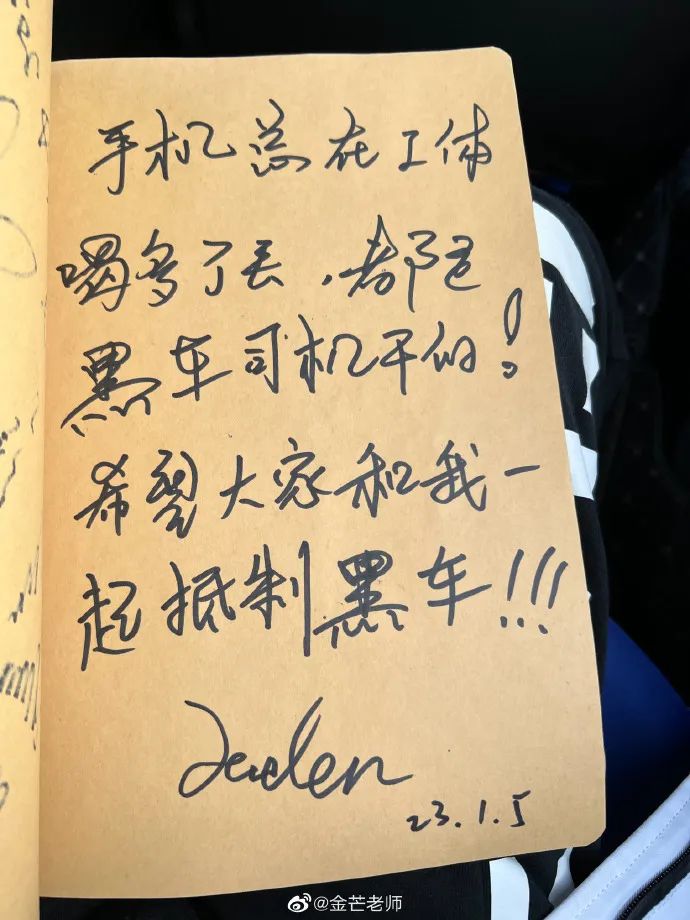 手机总在工体
喝多了丢，都是
黑车司机干的！
希望大家和我一
起抵制黑车!!!
23.1.5
@金芒老师